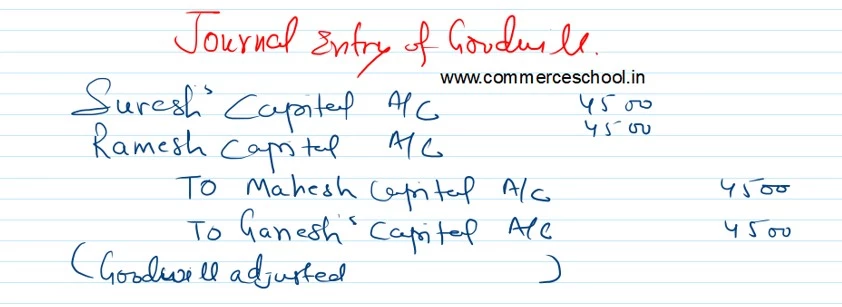 Journal Entry of Goodwill.
www.commerceschool.in
Suresh's Capital A/C 4500
Ramesh Capital A/C 4500
To Mahesh Capital A/C 4500
To Ganesh's Capital A/C 4500
(Goodwill adjusted )